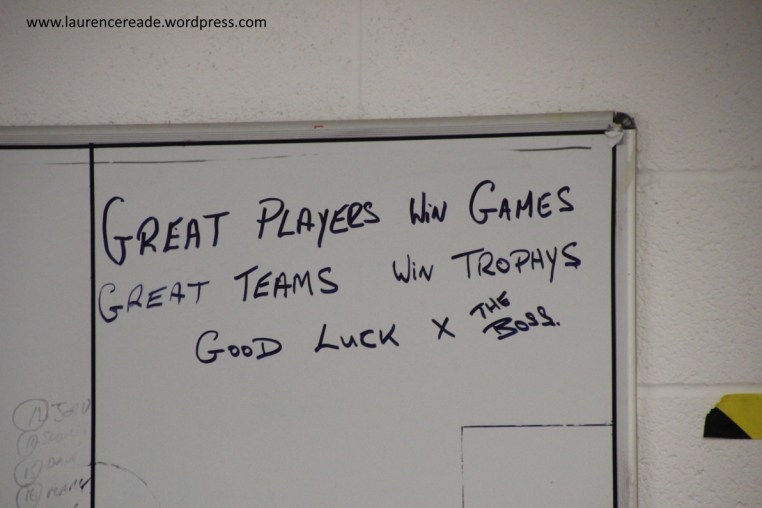 www.laurencereade.wordpress.com
GREAT PLAYERS WIN GAMES
GREAT TEAMS WIN TROPHYS
GOOD LUCK X THE BOSS.